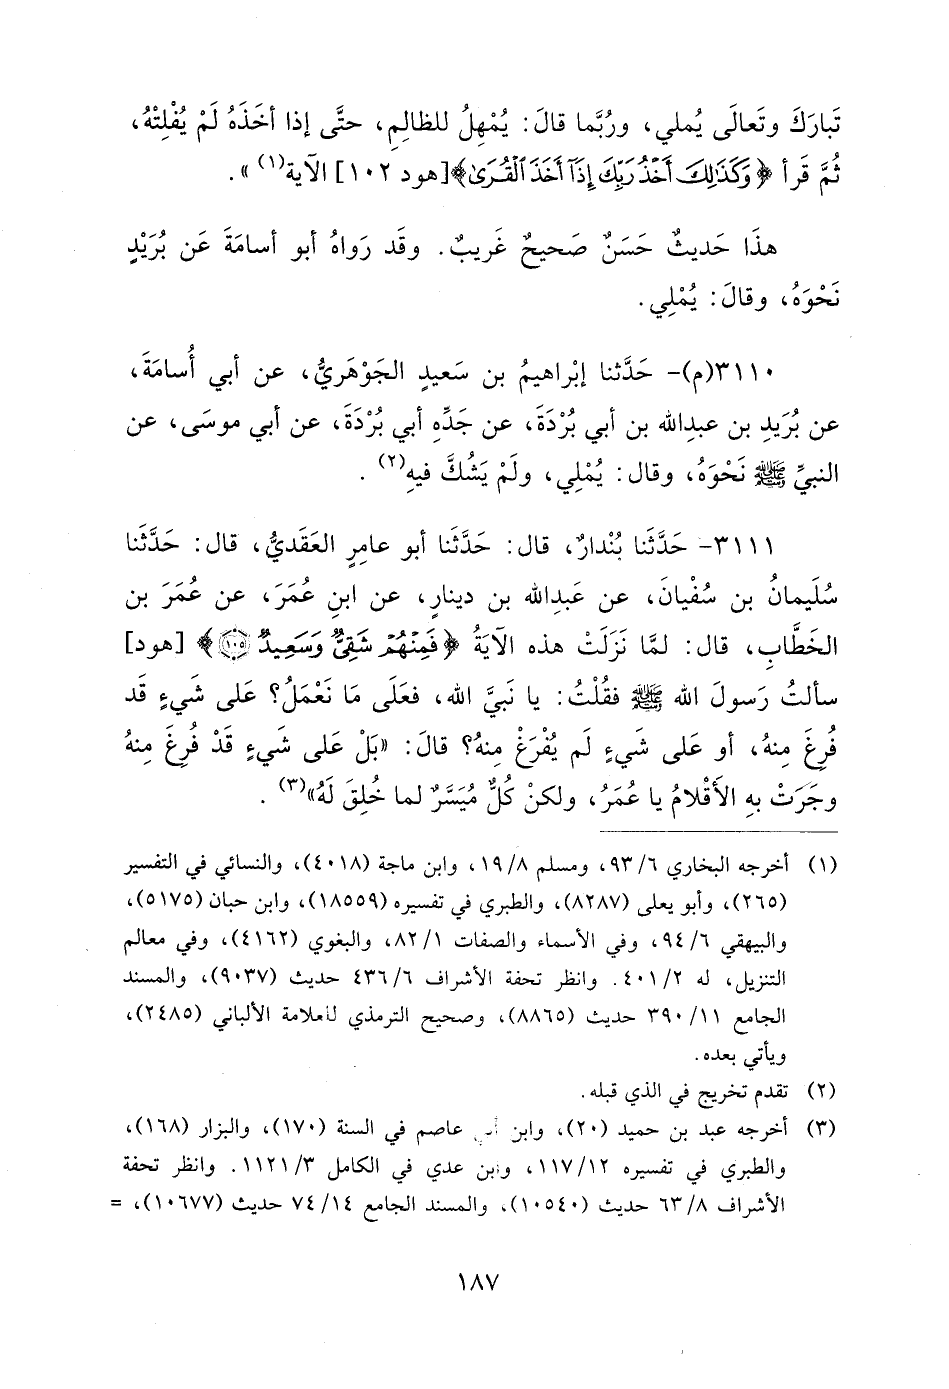 تَبارَكَ وتَعالَى يُملي، ورُبَّما قالَ: يُمْهِلُ للظالِمِ، حتَّى إذا أخَذَهُ لَمْ يُفْلِتْهُ،
ثُمَّ قَرأ ﴿وَكَذَٰلِكَ أَخْذُ رَبِّكَ إِذَآ أَخَذَ ٱلْقُرَىٰ﴾[هود ١٠٢] الآية(١)».
هذَا حَديثٌ حَسَنٌ صَحيحٌ غَريبٌ. وقَد رَواهُ أبو أسامَةَ عَن بُرَيْدٍ
نَحْوَهُ، وقالَ: يُمْلِي.
٣١١٠(م)- حَدَّثنا إبْراهيمُ بن سَعيدٍ الجَوْهَريُّ، عن أبي أُسامَةَ،
عن بُرَيدِ بن عبدِالله بن أبي بُرْدَةَ، عن جَدِّهِ أبي بُرْدَةَ، عن أبي موسَى، عن
النبيِّ ﷺ نَحْوَهُ، وقال: يُمْلِي، ولَمْ يَشُكَّ فيهِ(٢).
٣١١١- حَدَّثَنا بُنْدارٌ، قال: حَدَّثَنا أبو عامِرٍ العَقَديُّ، قال: حَدَّثَنا
سُلَيمانُ بن سُفْيانَ، عن عَبدِالله بن دينارٍ، عن ابنِ عُمَرَ، عن عُمَرَ بن
الخَطَّابِ، قال: لمَّا نَزَلَتْ هذه الآيَةُ ﴿فَمِنْهُمْ شَقِيٌّ وَسَعِيدٌ ١٠٥﴾ [هود]
سألتُ رَسولَ الله ﷺ فقُلْتُ: يا نَبيَّ الله، فعَلَى مَا نَعْمَلُ؟ عَلى شَيءٍ قَد
فُرِغَ مِنهُ، أو عَلى شَيءٍ لَم يُفْرَغْ مِنهُ؟ قالَ: «بَلْ عَلى شَيءٍ قَدْ فُرِغَ مِنهُ
وجَرَتْ بهِ الأَقْلامُ يا عُمَرُ، ولكنْ كُلٌّ مُيَسَّرٌ لما خُلِقَ لَهُ»(٣).
(١) أخرجه البخاري ٦/ ٩٣، ومسلم ٨/ ١٩، وابن ماجة (٤٠١٨)، والنسائي في التفسير
(٢٦٥)، وأبو يعلى (٨٢٨٧)، والطبري في تفسيره (١٨٥٥٩)، وابن حبان (٥١٧٥)،
والبيهقي ٦/ ٩٤، وفي الأسماء والصفات ١/ ٨٢، والبغوي (٤١٦٢)، وفي معالم
التنزيل، له ٢/ ٤٠١. وانظر تحفة الأشراف ٦/ ٤٣٦ حديث (٩٠٣٧)، والمسند
الجامع ١١/ ٣٩٠ حديث (٨٨٦٥)، وصحيح الترمذي للعلامة الألباني (٢٤٨٥)،
ويأتي بعده.
(٢) تقدم تخريج في الذي قبله.
(٣) أخرجه عبد بن حميد (٢٠)، وابن أبي عاصم في السنة (١٧٠)، والبزار (١٦٨)،
والطبري في تفسيره ١٢/ ١١٧، وابن عدي في الكامل ٣/ ١١٢١. وانظر تحفة
الأشراف ٨/ ٦٣ حديث (١٠٥٤٠)، والمسند الجامع ١٤/ ٧٤ حديث (١٠٦٧٧)، =
١٨٧